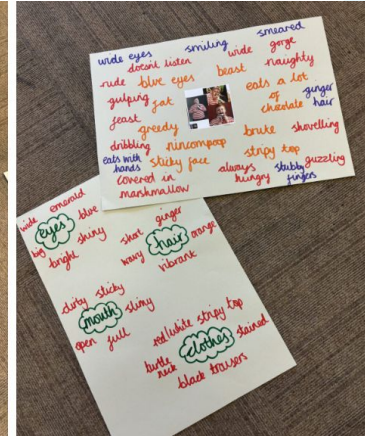 wide eyes smiling smeared
doesn't listen wide gorge
rude blue eyes beast naughty
gulping fat eats a lot of chocolate ginger hair
feast
greedy brute shovelling
dribbling nincompoop stripy top
eats with hands sticky face always hungry stubby fingers guzzling
covered in marshmallow
wide emerald
eyes blue
big shiny
bright
short ginger
hair orange
wavy vibrant
dirty sticky
mouth slimy
open full
red/white stripy top
clothes stained
turtle neck
black trousers